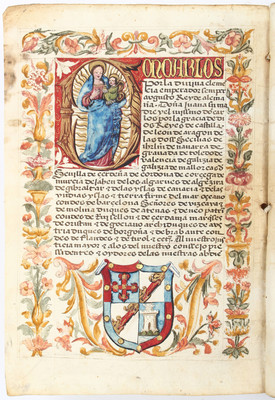 DON CARLOS
Por la diuina cleme
cia emperador semper
augusto Rey de alema
nia. Doña Juana su ma
dre y el mismo don car
los por la gracia de di
os Reyes de castilla
de leon de aragon de
las dos secilias de
iherusalem de nauarra de
granada de toledo de
valencia de galizia
de mallorcas de
Seuilla de cerdeña de cordoua de corcega de
murcia de Jahen de los algarues de algezira
de gibraltar y de las yslas de canaria y de las
yndias yslas y tierra firme del mar oceano
condes de barcelona Señores de vizcaya y
de molina duques de atenas y de neopatria
condes de Ruysellon y de cerdania marqses
de oristan y de gociano archiduques de avs
tria duques de borgoña y de brabante con
des de flandes y de tirol. etc. Al nuestro jus
ticia mayor y a los del nuestro consejo pre
sidentes y oydores de las nuestras abdie